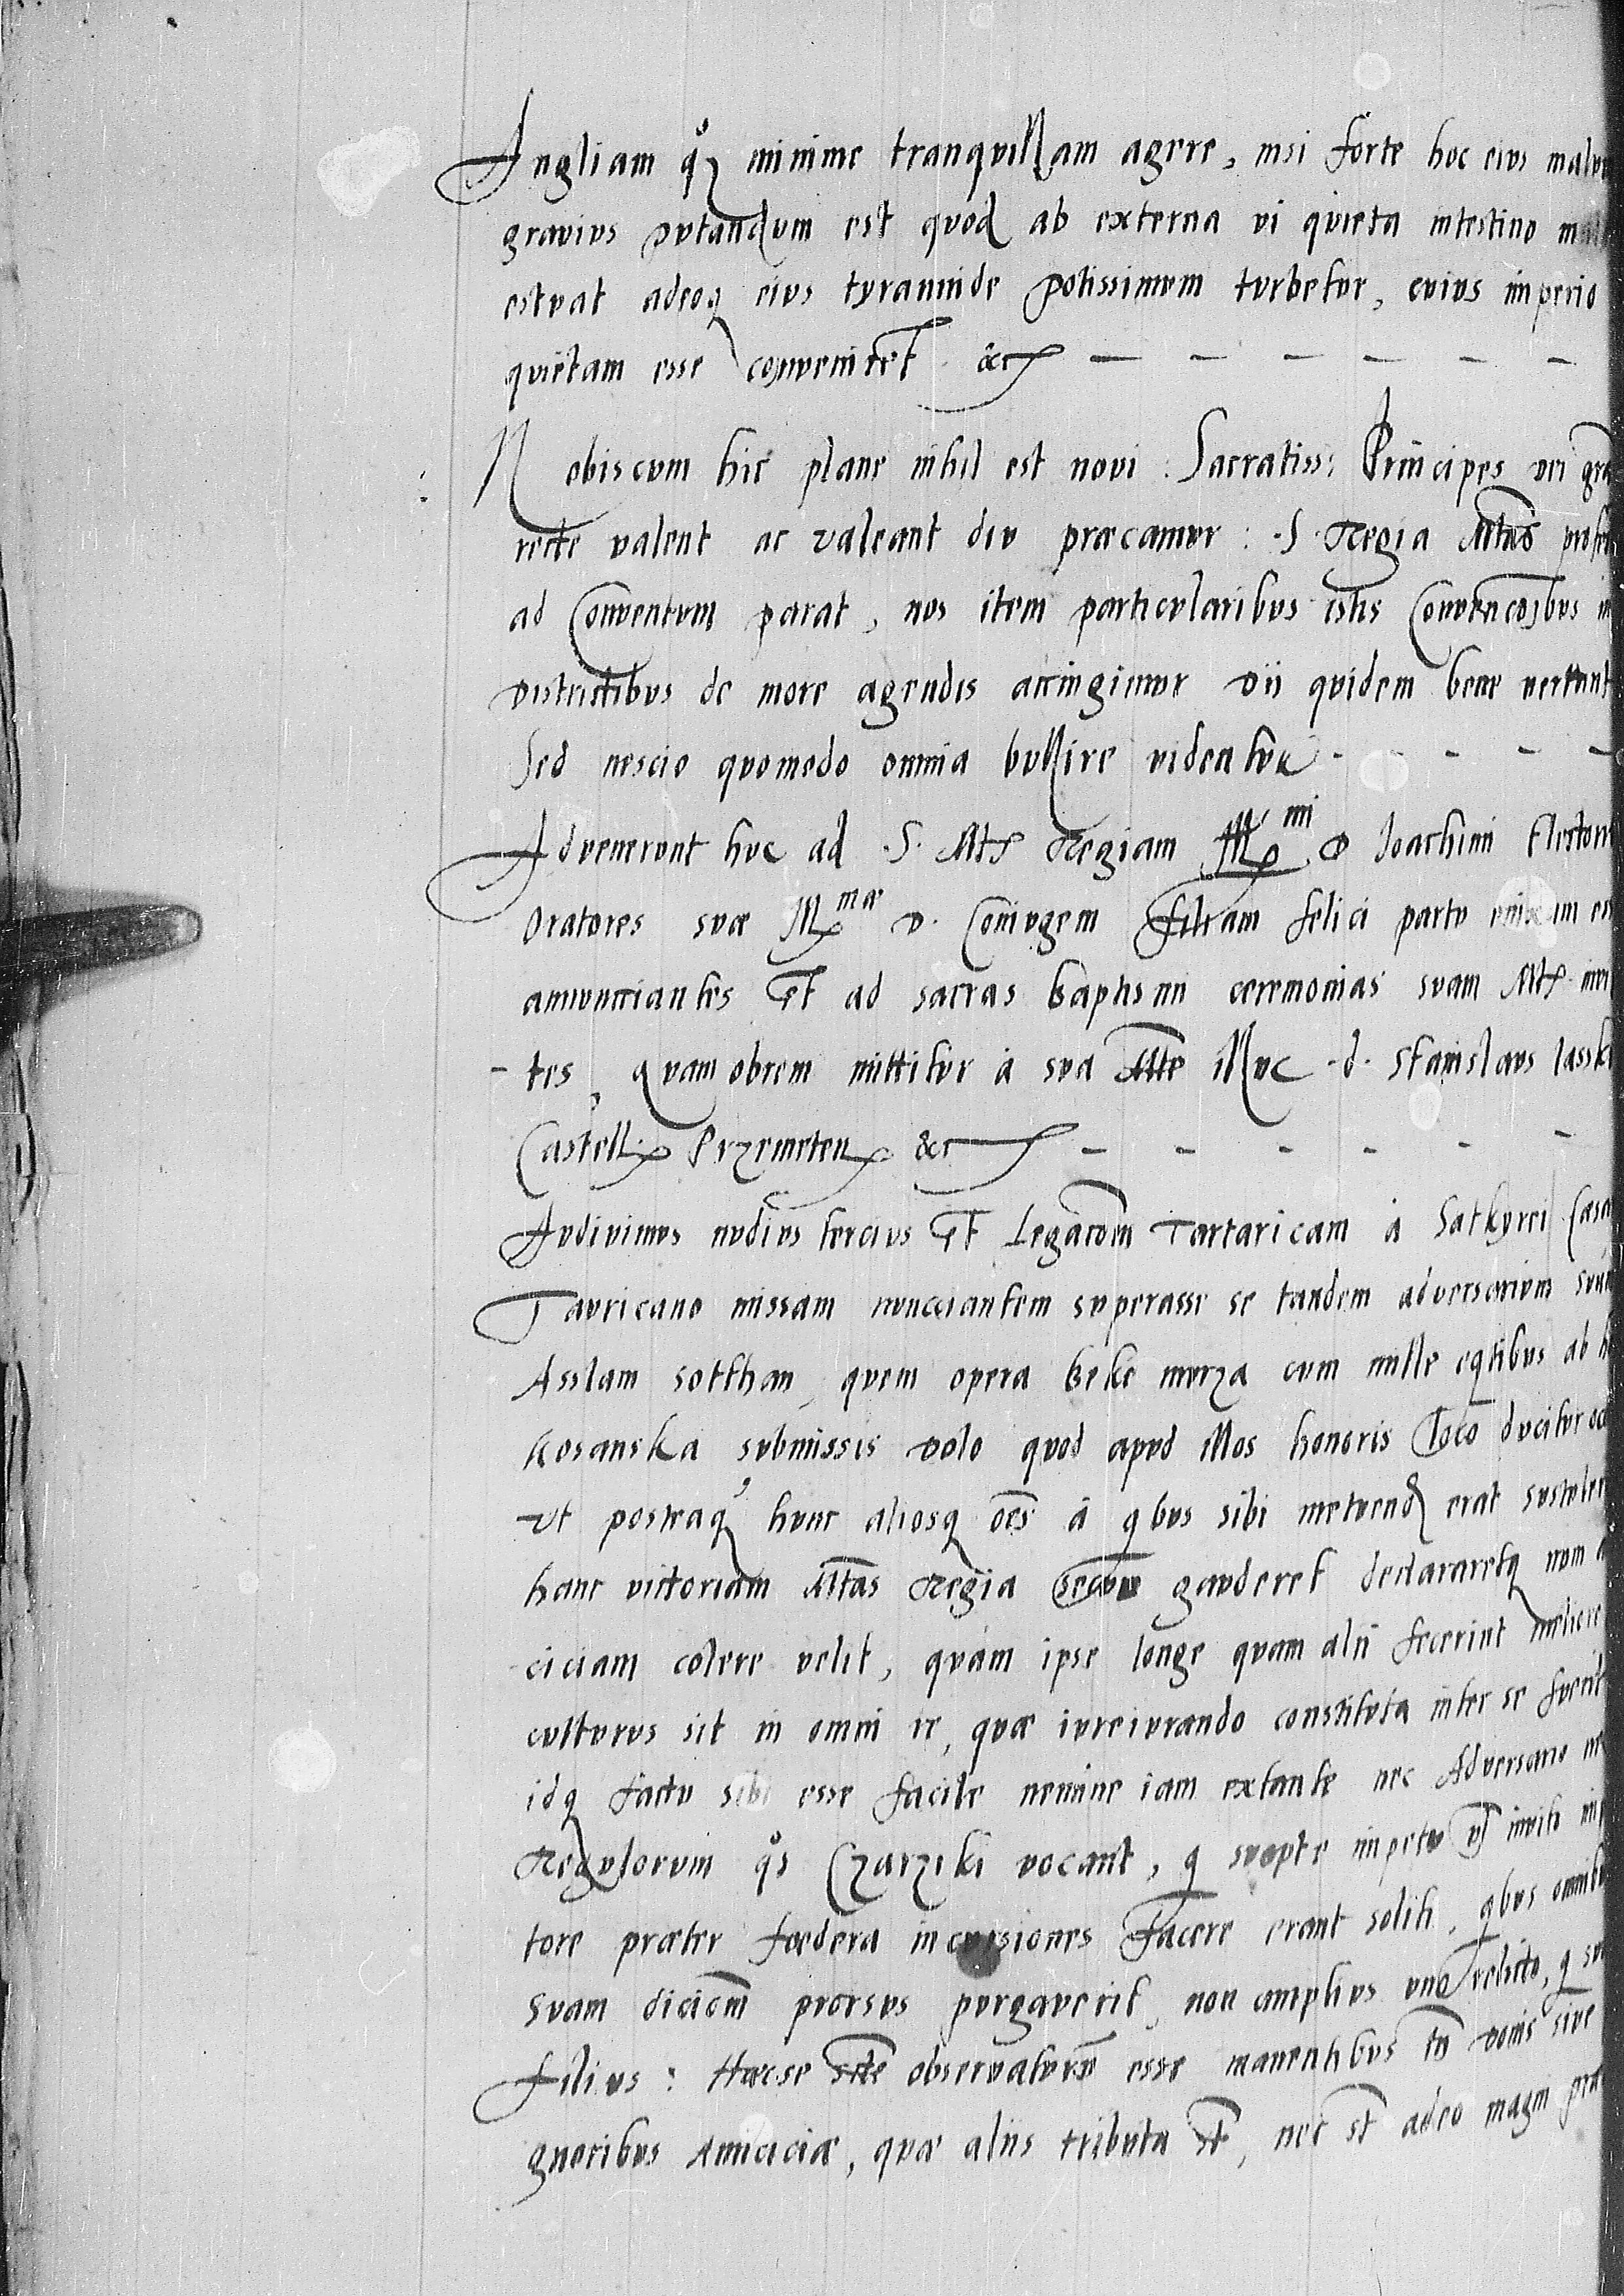 Angliam qͦꝫ minime tranquillam agere, nisi forte hoc eius
gravius putandum est quod ab externa vi quieta intestino
estuat adeoq eius tyrannide potissimum turbetur, cuius imperio
quietam esse conveniret &c
Nobiscum hic plane nihil est novi: Sacratiss: Principes vri
recte valent ac valeant diu præcamur: S. Regia Mtas
ad Conventum parat, nos item particularibus istis
districtibus de more agendis accingimur Dii quidem bene vertant
Sed nescio quomodo omnia bullire videntur
Advenerunt huc ad .S. Mtẽ Regiam D Joachimi
Oratores suæ D. Coniugem filiam felici partu
annuncciantes et ad sacras baptismi ceremonias suam Mtẽ
tes, quam obrem mittitur à sua Mte illuc d. Stanislaus
Castell. Przemeten &c
Audivimus nudius tercius et Legacõm Tartaricam à Satkyrei
Tauricano missam nuncciantem superasse se tandem adversarium
Asslam solthan, quem opera beke murza cum mille eqtibus ab
kosanska submissis dolo quod apud illos honoris loco ducitur
Ut postea q hunc aliosq oẽs à qbus sibi metuend erat
hanc victoriam Mtas Regia secum gauderet declararetq num
ciciam colere velit, quam ipse longe quam alii fecerint
culturus sit in omni re, quæ iureiurando constituta inter se
idq factu sibi esse facile nemine iam extante nec Adversario
Regulorum qͦs Czarziki vocant, q suopte impetu vl invito
tore præter fœdera incursiones facere erant soliti, qbus
Suam dicionẽ prorsus purgaverit, non amplius uno relicto, q
filius: Hæc se observaturũ esse manentibus tñ donis sive
gneribus Amiciciæ, quæ aliis tributa st, nec st adeo magni